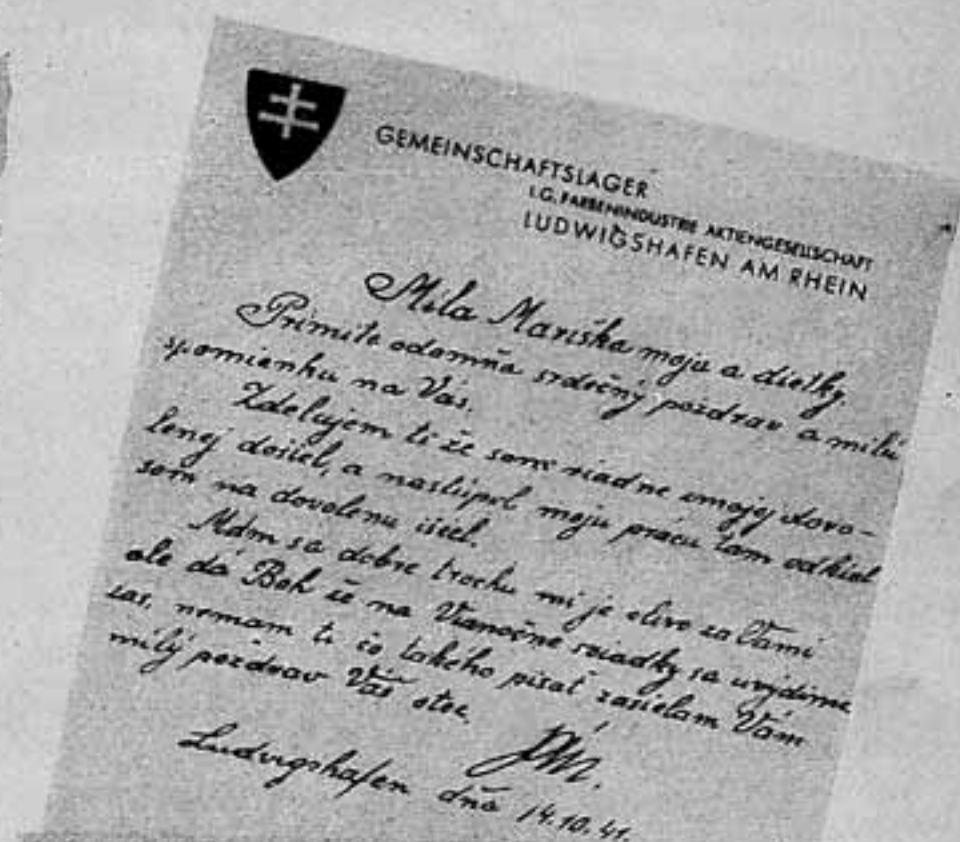 GEMEINSCHAFTSLAGER
I.G. FARBENINDUSTRIE AKTIENGESELLSCHAFT
LUDWIGSHAFEN AM RHEIN
Milá Mariška moja a dietky.
Primite odomňa srdečný pozdrav a milú
spomienku na Vás.
Zdelujem ti že som riadne zmojej dovo-
lenej došiel, a nastúpol moju prácu tam odkial
som na dovolenu išiel.
Mám sa dobre trochu mi je clivo za Vámi
ale dá Boh že na Vianočné sviadky sa uvidíme
zas, nemam ti čo takého písať zasielam Vám
milý pozdrav Váš otec.
Ludvigshafen dňa 14.10.41.